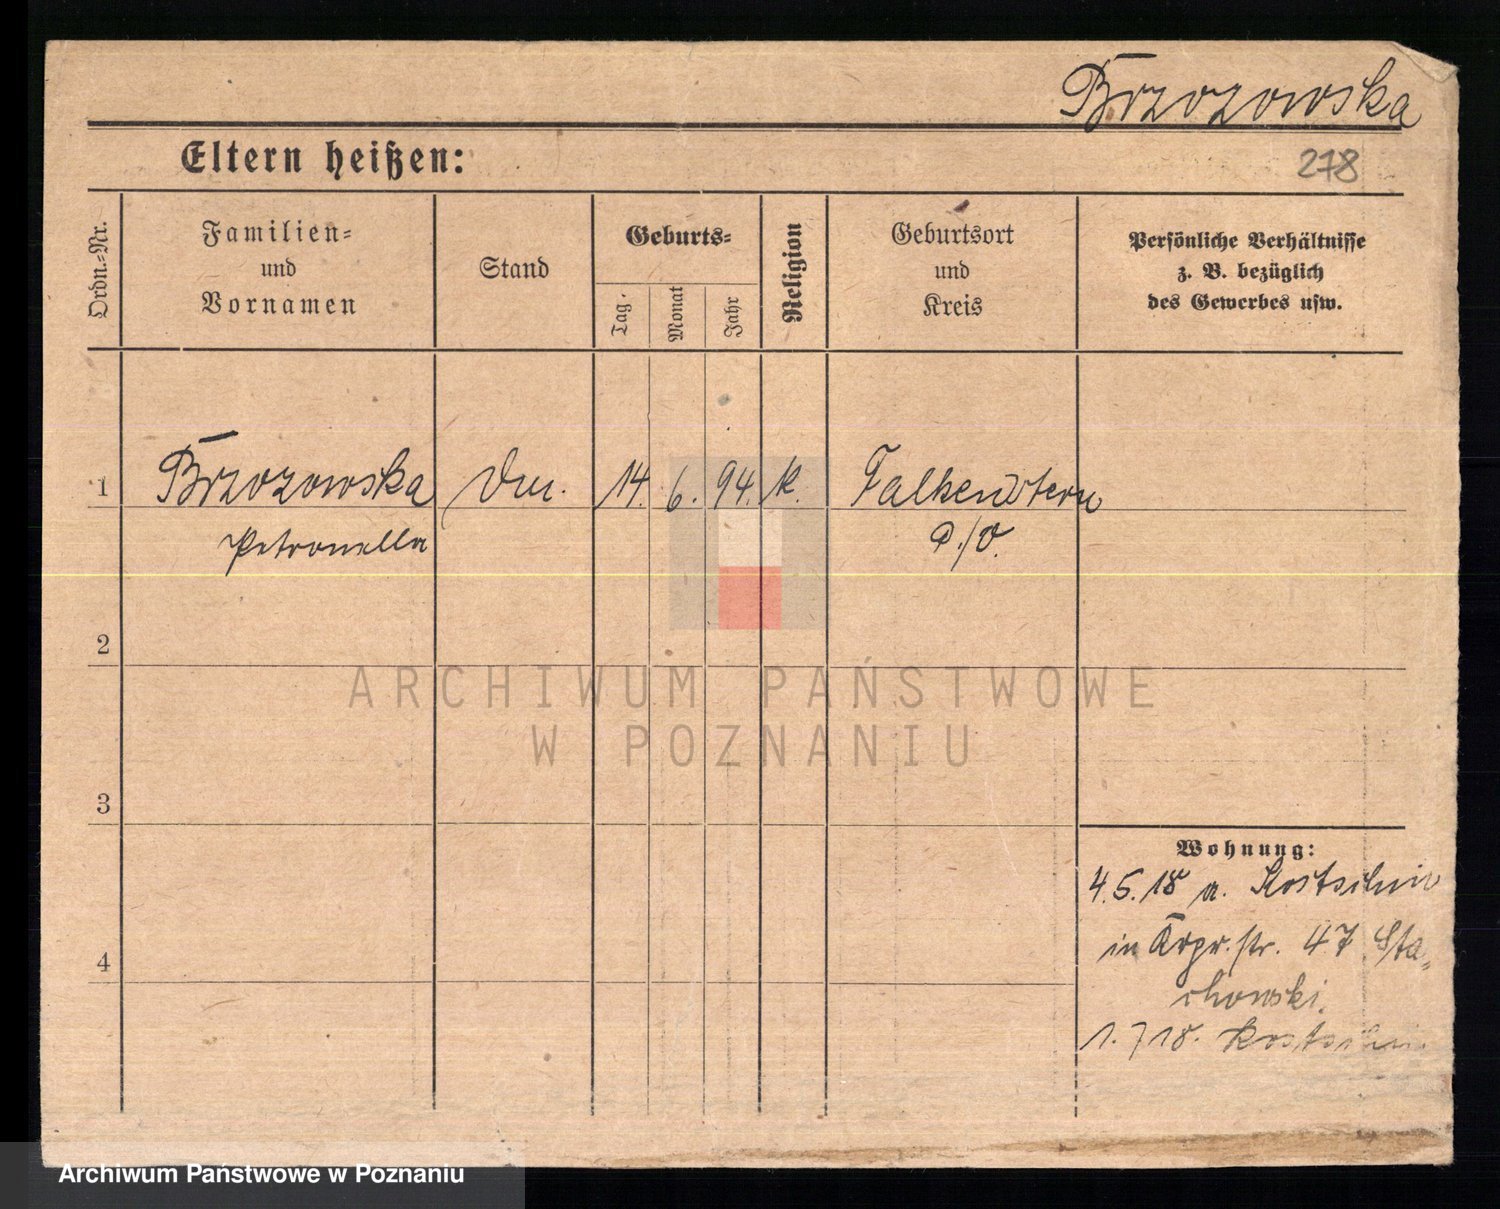 Brzozowska
Eltern heißen:
278
Ordn.-Nr.
Familien-
und
Vornamen
Stand
Geburts-
Tag.
Monat
Jahr
Religion
Geburtsort
und
Kreis
Persönliche Verhältnisse
z. B. bezüglich
des Gewerbes usw.
1 Brzozowska 14. 6. 94. k. Falkenstern
Petronella
2
3
4
Wohnung:
4.5.18 a. Kostschin
in 47 Sta-
chowski.
1.7 18. Kostschin
ARCHIWUM PAŃSTWOWE
W POZNANIU
Archiwum Państwowe w Poznaniu